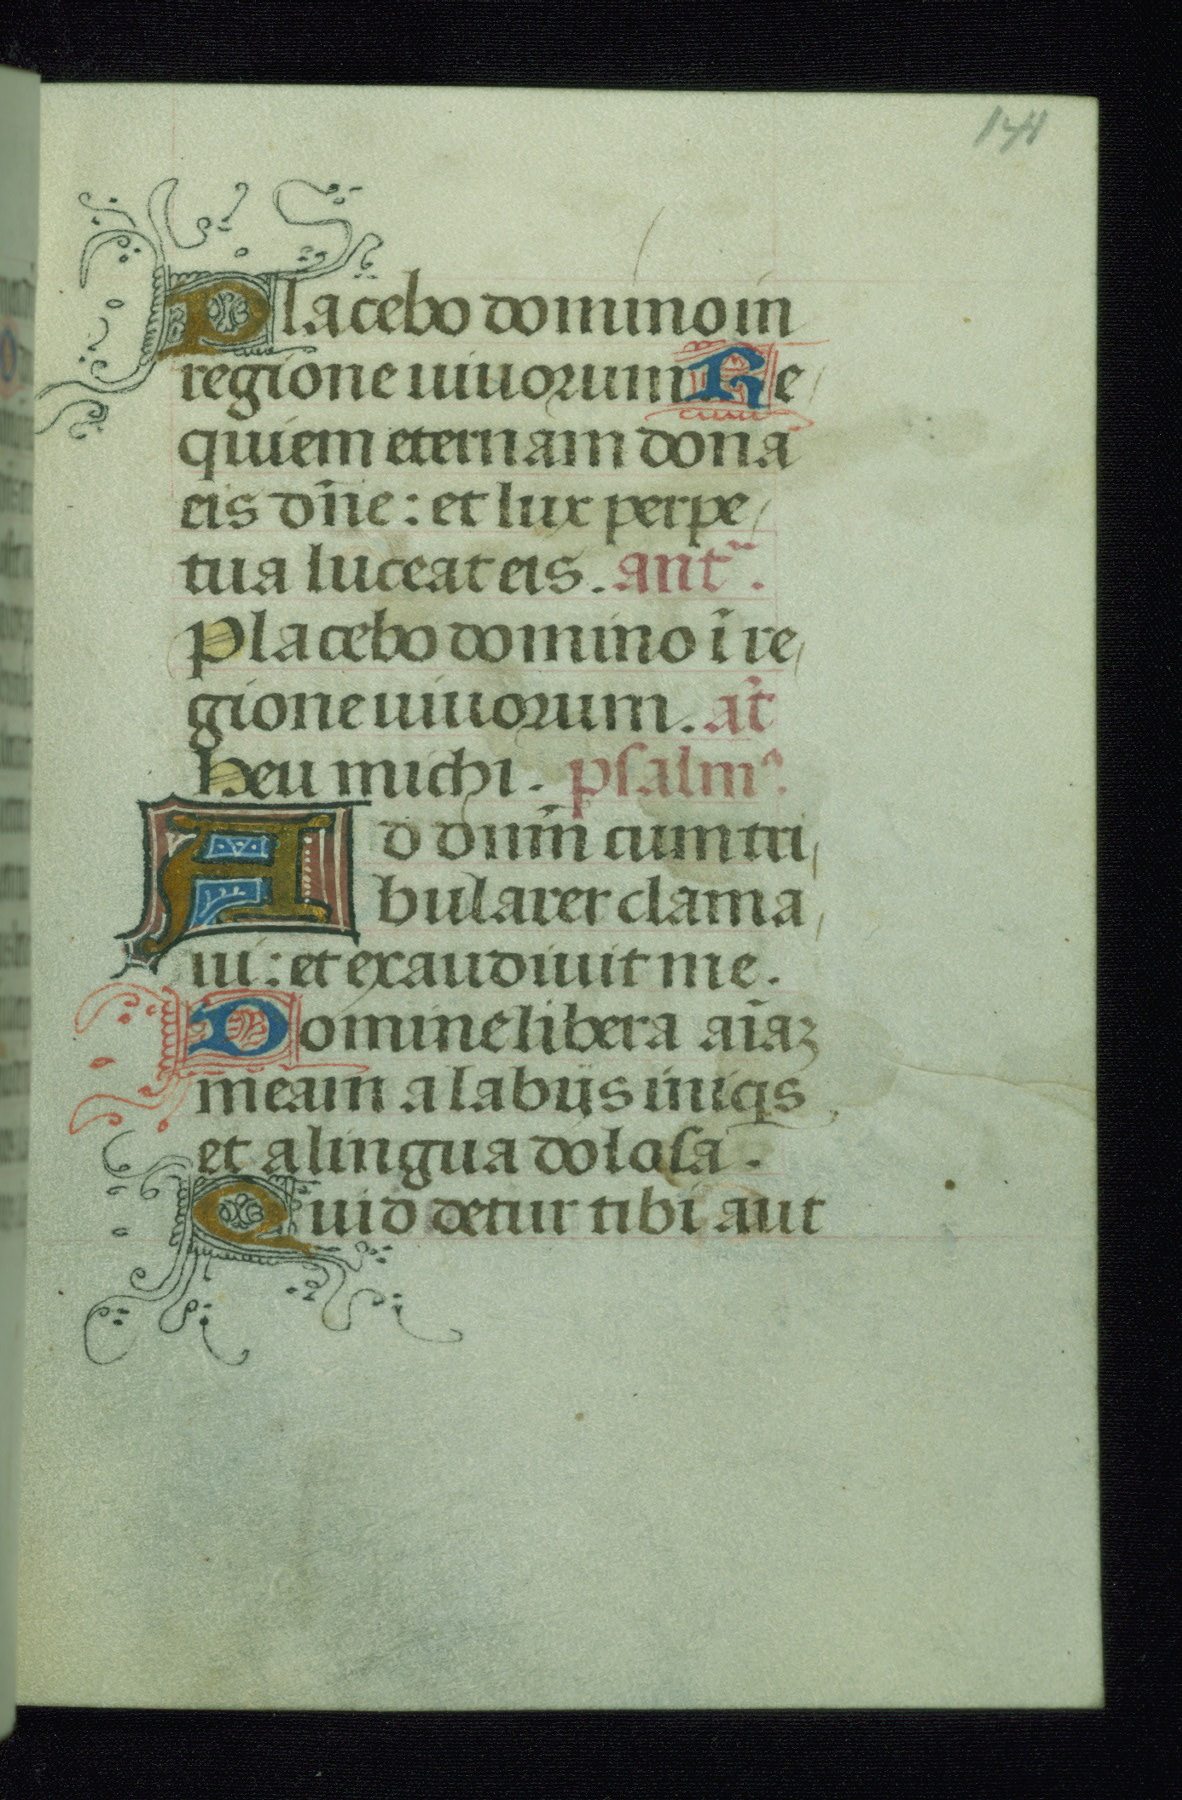 141
Placebo domino in
regione uiuorum Re
quiem eternam dona
eis dn̄e: et lux perpe
tua luceat eis. ant̄.
Placebo domino ī re
gione uiuorum. at̄
heu michi. psalmᵒ.
Ad dnū̄m cum tri
bularer clama
ui: et exaudiuit me.
Domine libera aīaꝫ
meam a labiis iniqis
et a lingua dolosa.
Quid detur tibi aut